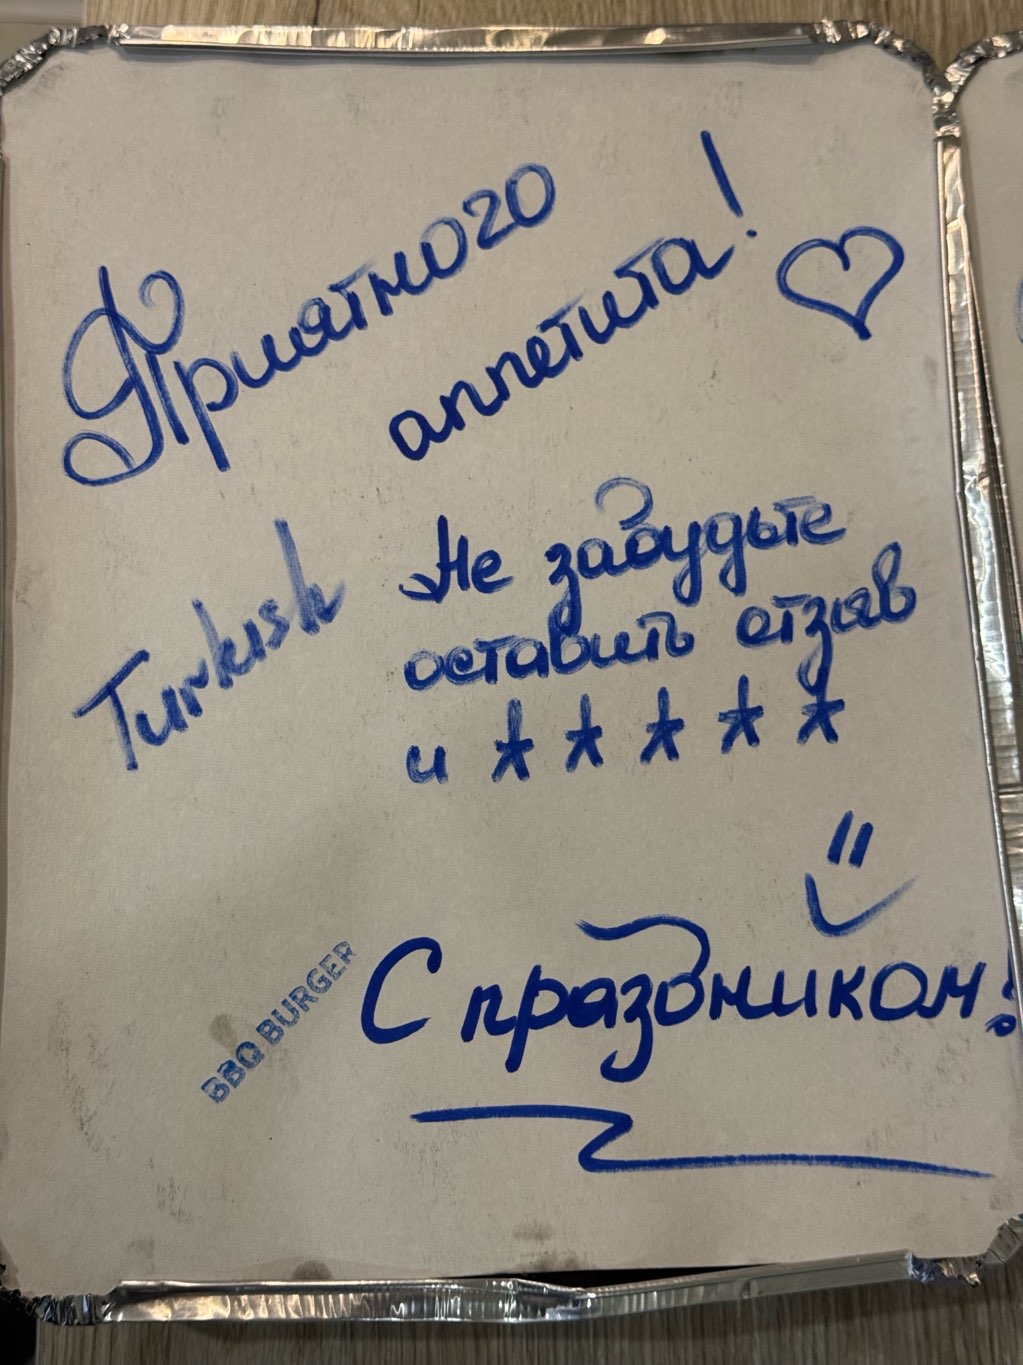 Приятного
аппетита!
Не забудьте
оставить отзыв
и ★★★★★
Turkish
С праздником!
BBQ BURGER